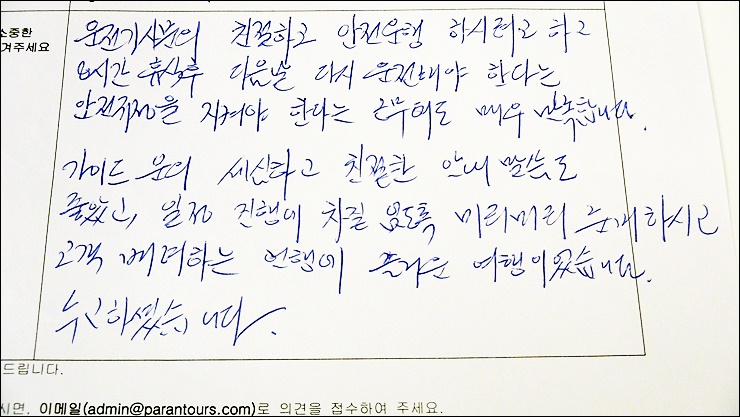 소중한
겨주세요
운전기사분의 친절하고 안전운행 하시려고 하고
8시간 휴식후 다음날 다시 운전해야 한다는
안전규정을 지켜야 한다는 근무태도 매우 만족합니다.
가이드 분의 세심하고 친절한 안내 말씀도
좋았고, 일정 진행에 차질 없도록 미리미리 준비하시고
고객 배려하는 언행에 즐거운 여행이었습니다.
수고하셨습니다.
드립니다.
시면, 이메일(admin@parantours.com)로 의견을 접수하여 주세요.